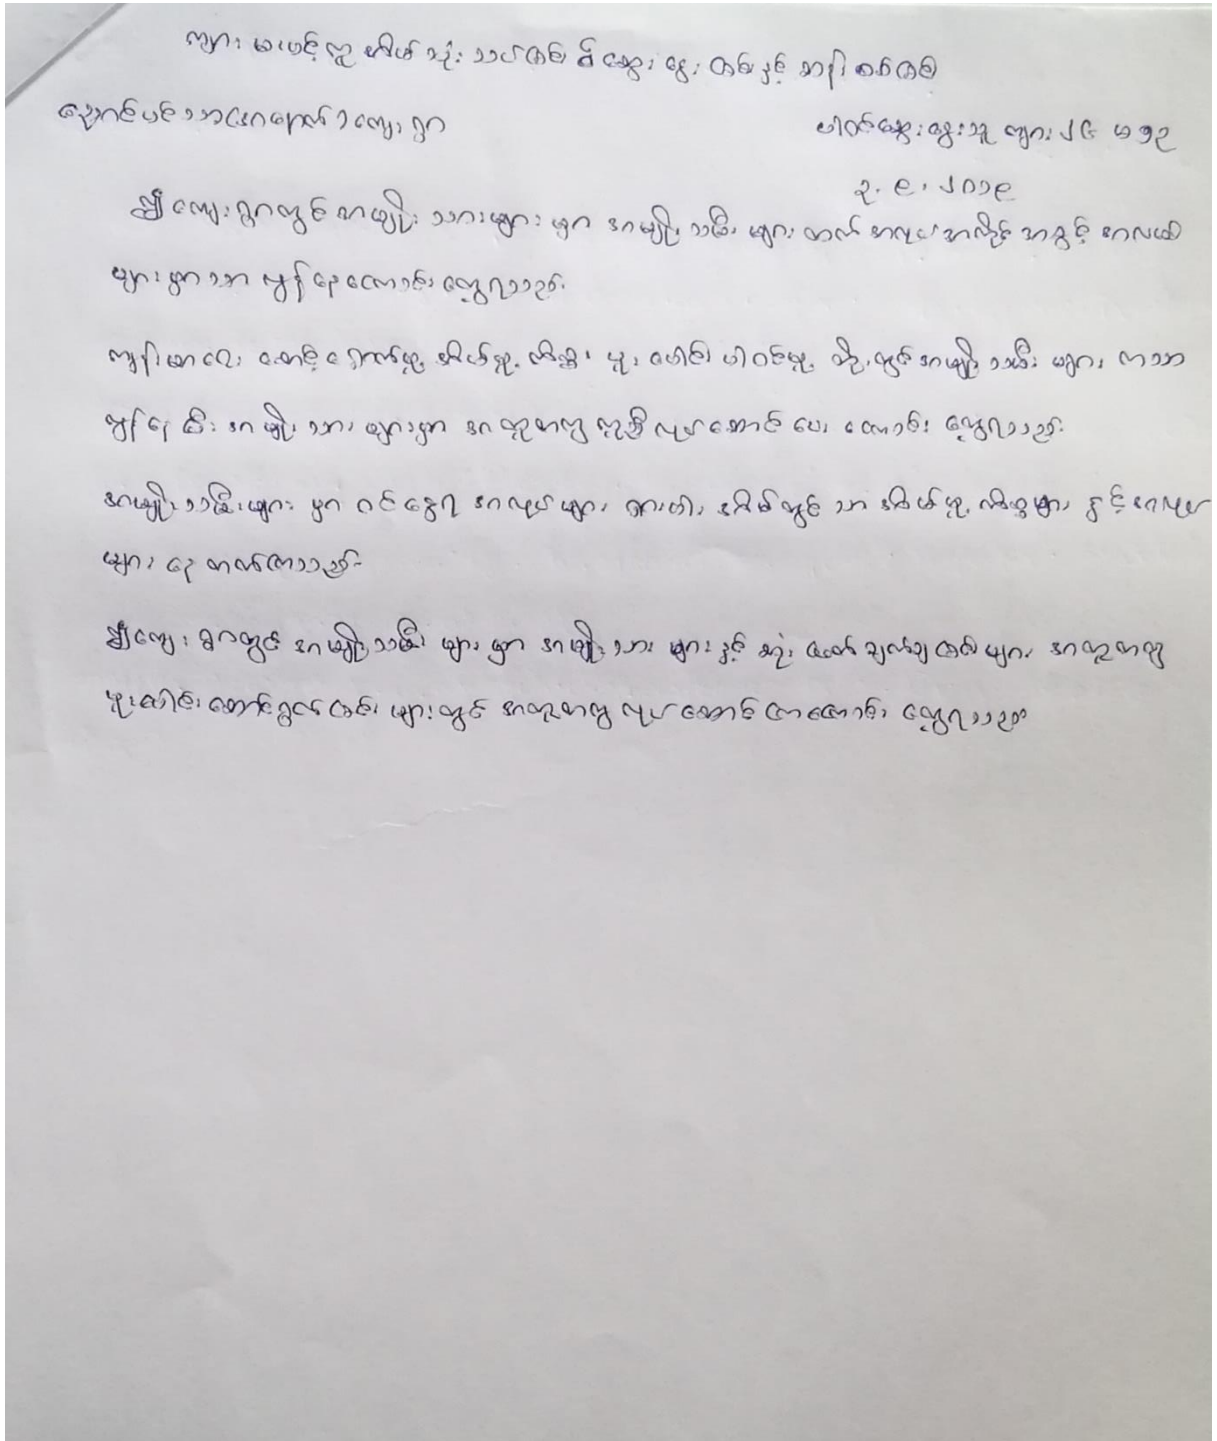 ကျား မ၊ပင့်ကူ အိမ်သုံး သပ်ခြင်း၍ ဆွေး နွေး ခြင်းနှင့် ဆန်း စစ်ခြင်း
ညောင်ပင်သာအနောက် ကျေးရွာ
ပါဝင်ဆွေးနွေးသူ ကျား ၂၆ မ ၁၃
၃.၉.၂၀၁၉
ဤ ကျေးရွာတွင် အမျိုး သားများ မှာ အမျိုး သမီး များ ထက် အလုပ်အကိုင် အခွင့် အလမ်း
များ မှာသာ လွန် နေကြောင်း တွေ့ရသည်။
ကျန်းမာရေး စောင့်ရှောက်မှု့ အိမ်မှု့ ကိစ္စ၊ ပူး ပေါင်း ပါဝင်မှု့ တို့ တွင် အမျိုး သမီး များ ကသာ
လွန်နေ ပြီး အမျိုး သား များမှာ အတူတကွ ကူညီ လုပ်ဆောင် ပေး ကြောင်း တွေ့ရသည်။
အမျိုး သမီးများ မှာ ဝင်ငွေရ အလုပ်များ ရှားပါး အိမ်တွင် သာ အိမ်မှု့ ကိစ္စများ နှင့်အလုပ်
များ နေ တတ်ကြသည်။
ဤကျေး ရွာတွင် အမျိုးသမီး များ မှာ အမျိုး သား များ နှင့် ဆုံး ဖြတ် ချက်ချ ခြင်း များ အတူတကွ
ပူးပေါင်း ဆောင်ရွက် ခြင်း များ တွင် အတူတကွ လုပ်ဆောင် ကြကြောင်း တွေ့ရသည်။